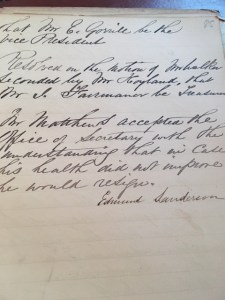 that Mr E. Gorille be the
Vice President
Resolved on the motion of Mr
seconded by Mr that
Mr J. Fairmaner be
Mr Matthews accepted the
Office of Secretary with the
understanding that in Case
his health did not improve
he would resign.
Edmund Sanderson